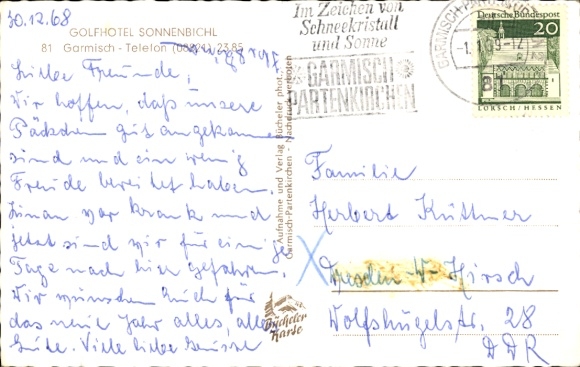 30.12.68
GOLFHOTEL SONNENBICHL
81 Garmisch - Telefon (08821) 23 85
Liebe Freunde,
Wir hoffen, daß unsere
Päckchen gut angekommen
sind und ein wenig
Freude bereitet haben.
war krank und
jetzt sind wir für einige
Tage nach hier gefahren.
Wir wünschen Euch für
das neue Jahr alles, alles
Gute. Viele liebe Grüsse
Aufnahme und Verlag Bücheler phot.,
Garmisch-Partenkirchen - Nachdruck verboten
Bücheler
Karte
Im Zeichen von
Schneekristall
und Sonne
GARMISCH
PARTENKIRCHEN
GARMISCH-PARTENKIRCHEN
-1.1.69-12
Deutsche Bundespost
20
LORSCH/HESSEN
Familie
Herbert Küttner
Dresden-W-Hirsch
Wolfshügelstr. 28
DDR